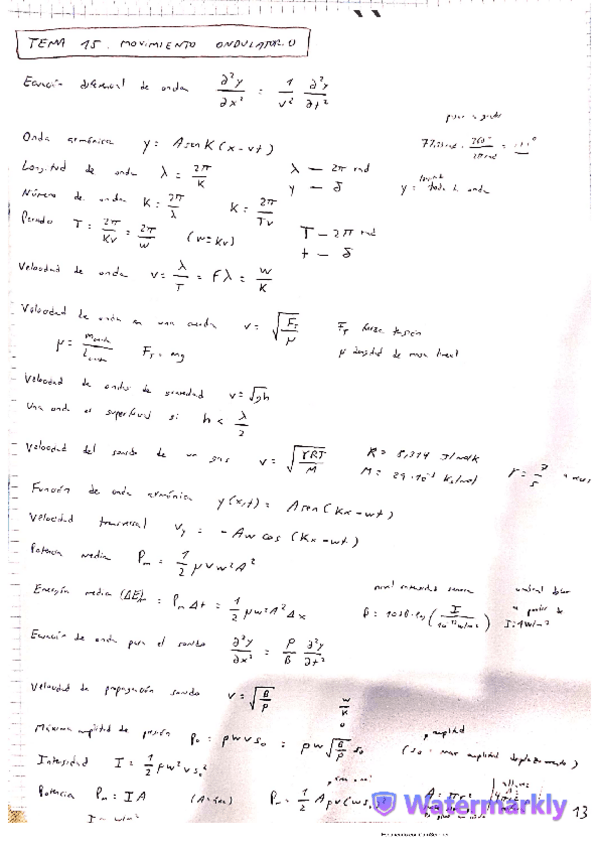 TEMA 15. MOVIMIENTO ONDULATORIO
Ecuación diferencial de onda ∂²y/∂x² = 1/v² ∂²y/∂t²
Onda armónica y = A sen K (x - vt)
Longitud de onda λ = 2π/K λ — 2π rad
y — δ
Número de onda K = 2π/λ K = 2π/Tv
Periodo T = 2π/Kv = 2π/w (w = Kv) T — 2π rad
t — δ
Velocidad de onda v = λ/T = Fλ = w/K
Velocidad de onda en una cuerda v = √(F_T/μ) F_T fuerza tensión
μ = m/L F_T = mg μ densidad de masa lineal
Velocidad de ondas de gravedad v = √gh
Una onda es superficial si h < λ/2
Velocidad del sonido de un gas v = √(γRT/M) R = 8,314 J/molK
M = 29·10⁻³ Kg/mol γ = 7/5
Función de onda armónica y(x,t) = A sen (Kx - wt)
Velocidad transversal v_y = -Aw cos (Kx - wt)
Potencia media P_m = 1/2 μvw²A²
Energía media (ΔE)_m = P_m Δt = 1/2 μw²A²Δx
nivel intensidad sonora umbral dolor
β = 10dB·lg (I/10⁻¹²w/m²) a partir de I = 1W/m²
Ecuación de onda para el sonido ∂²y/∂x² = ρ/B ∂²y/∂t²
Velocidad de propagación sonido v = √(B/ρ) w/K
Máxima amplitud de presión P₀ = ρwvs₀ = ρw√(B/ρ) s₀ amplitud
(s₀ = max amplitud desplazamiento)
Intensidad I = 1/2 ρw²vs₀²
Potencia P_m = IA P_m = 1/2 Aρv(ws₀)²
Watermarkly
13